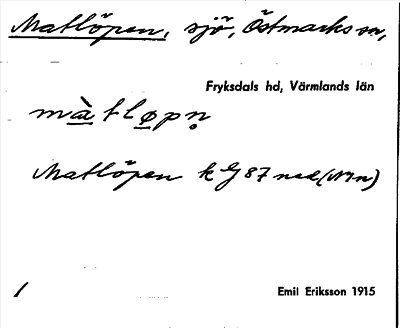 Matlöpen, sjö, Östmarks sn,
Fryksdals hd, Värmlands län
màtløpn̥
Matlöpen k G 87 ned (N)
Emil Eriksson 1915